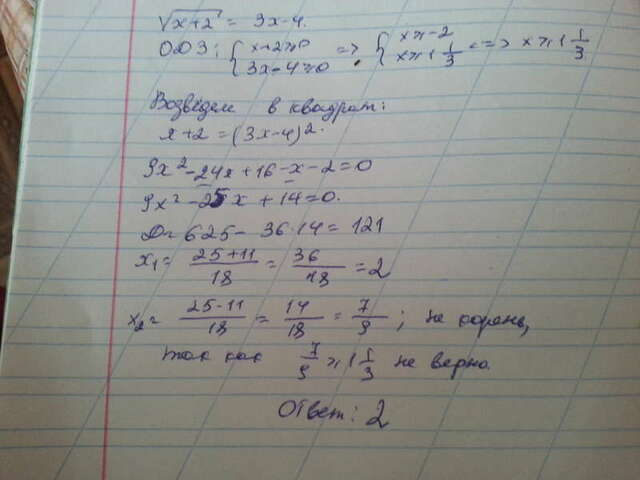 √x+2 = 3x-4.
ОДЗ: { x+2≥0 3x-4≥0 => { x≥-2 x≥1 1/3 <=> x≥1 1/3
Возведем в квадрат:
x+2 = (3x-4)².
9x² - 24x + 16 - x - 2 = 0
9x² - 25x + 14 = 0.
D = 625 - 36·14 = 121
x₁ = 25+11/18 = 36/18 = 2
x₂ = 25-11/18 = 14/18 = 7/9 ; не корень,
так как 7/9 ≥ 1 1/3 не верно.
Ответ: 2